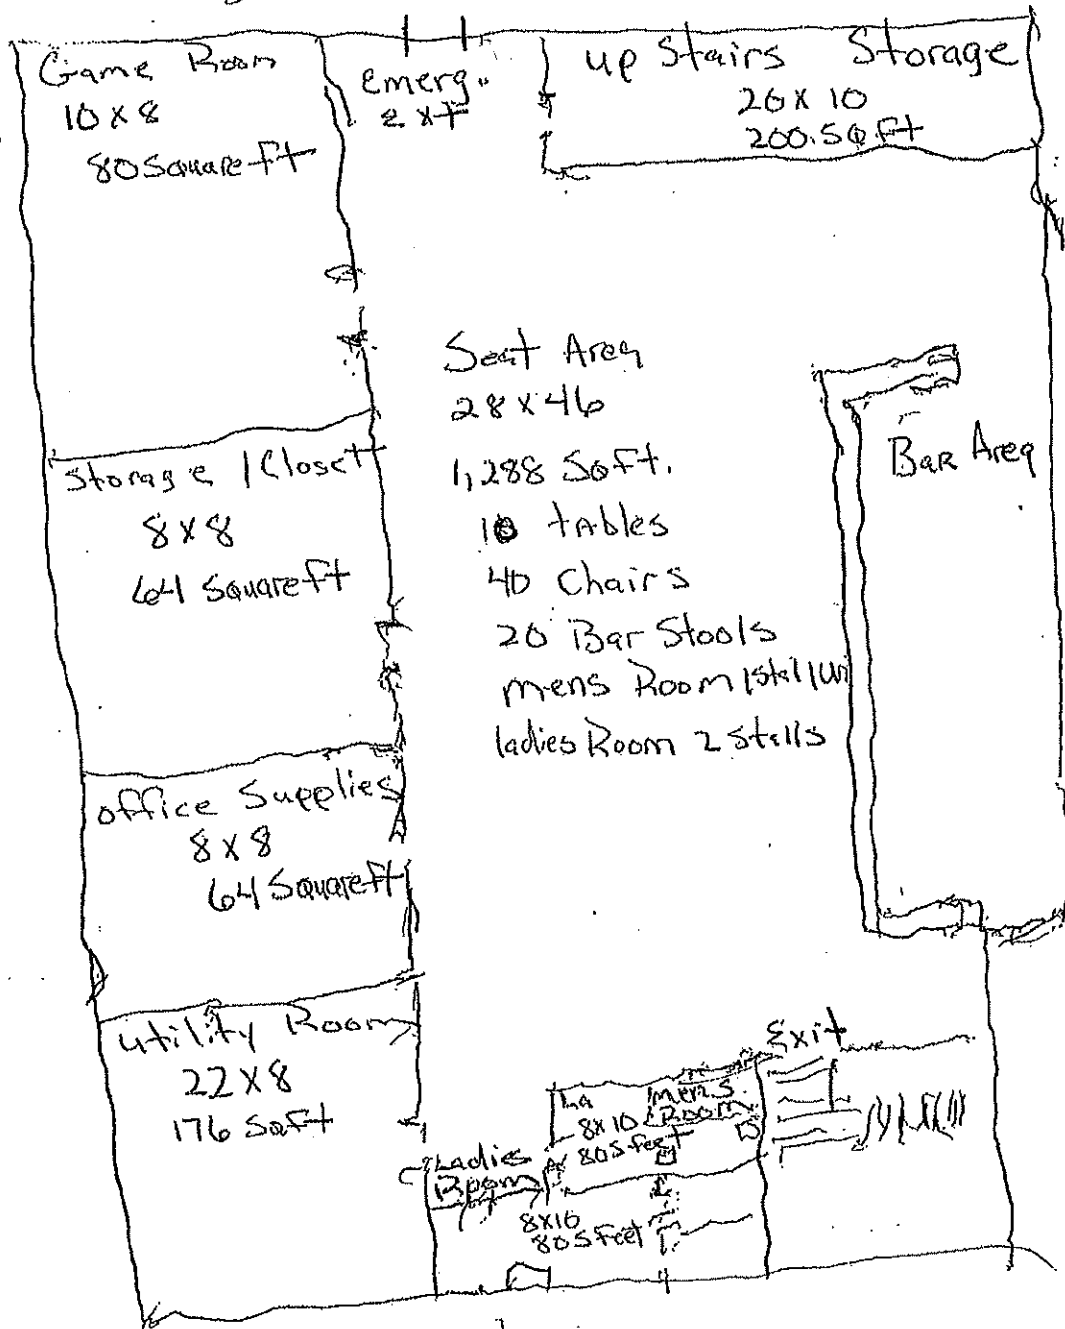 Game Room
10 x 8
80 Square ft
emerg.
up Stairs Storage
20 x 10
200.SQ ft
Seat Area
28 x 46
1,288 SqFt.
10 tAbles
40 Chairs
20 Bar Stools
mens Room 1 Stal 1 Uri
ladies Room 2 Stalls
Bar Area
Storage / Closet
8 x 8
64 Square ft
office Supplies
8 x 8
64 Square ft
utility Room
22 x 8
176 SqFt
Exit
Mens
Room
8x10
80 S feet
Ladies
Room
8x10
80 S Feet